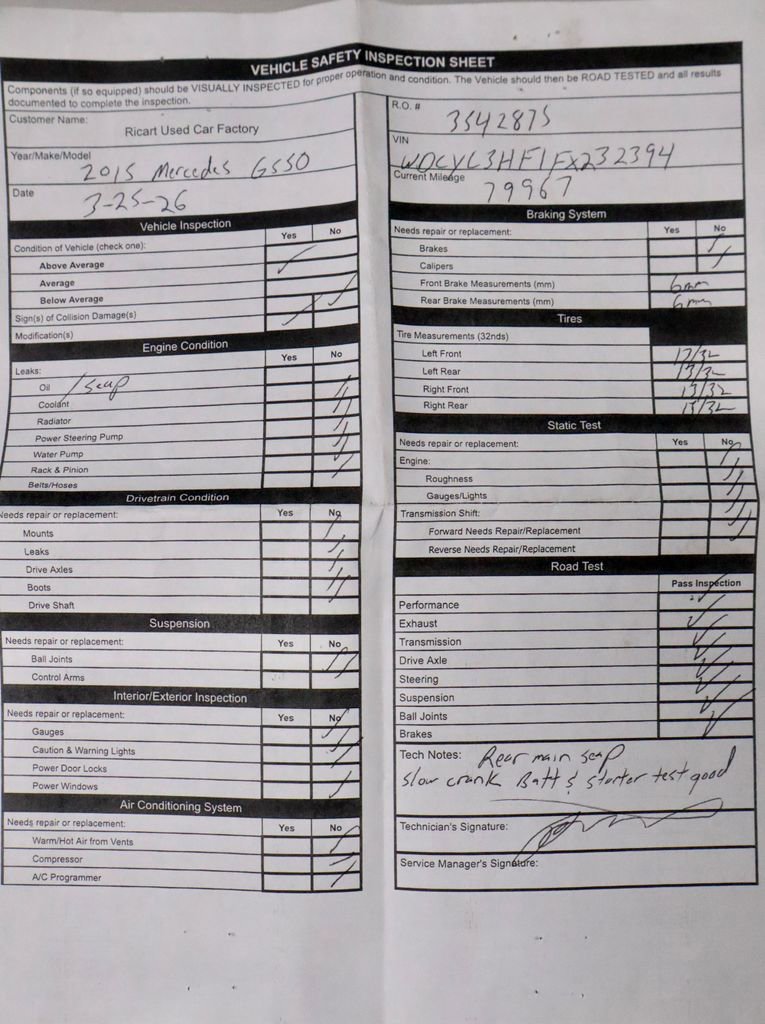 VEHICLE SAFETY INSPECTION SHEET
Components (if so equipped) should be VISUALLY INSPECTED for proper operation and condition. The Vehicle should then be ROAD TESTED and all results
documented to complete the inspection.
Customer Name:
Ricart Used Car Factory
Year/Make/Model
2015 Mercedes G550
Date
3-25-26
Vehicle Inspection
Condition of Vehicle (check one): Yes No
Above Average
Average
Below Average
Sign(s) of Collision Damage(s)
Modification(s)
Engine Condition
Leaks: Yes No
Oil / seap
Coolant
Radiator
Power Steering Pump
Water Pump
Rack & Pinion
Belts/Hoses
Drivetrain Condition
Needs repair or replacement: Yes No
Mounts
Leaks
Drive Axles
Boots
Drive Shaft
Suspension
Needs repair or replacement: Yes No
Ball Joints
Control Arms
Interior/Exterior Inspection
Needs repair or replacement: Yes No
Gauges
Caution & Warning Lights
Power Door Locks
Power Windows
Air Conditioning System
Needs repair or replacement: Yes No
Warm/Hot Air from Vents
Compressor
A/C Programmer
R.O. #
3542875
VIN
WDCYC3HF1FX232394
Current Mileage
79967
Braking System
Needs repair or replacement: Yes No
Brakes
Calipers
Front Brake Measurements (mm) 6mm
Rear Brake Measurements (mm) 6mm
Tires
Tire Measurements (32nds)
Left Front
Left Rear 13/32
Right Front 13/32
Right Rear 13/32
Static Test
Needs repair or replacement: Yes No
Engine:
Roughness
Gauges/Lights
Transmission Shift:
Forward Needs Repair/Replacement
Reverse Needs Repair/Replacement
Road Test
Pass Inspection
Performance
Exhaust
Transmission
Drive Axle
Steering
Suspension
Ball Joints
Brakes
Tech Notes: Rear main seap
Slow crank Batt & starter test good
Technician's Signature:
Service Manager's Signature: